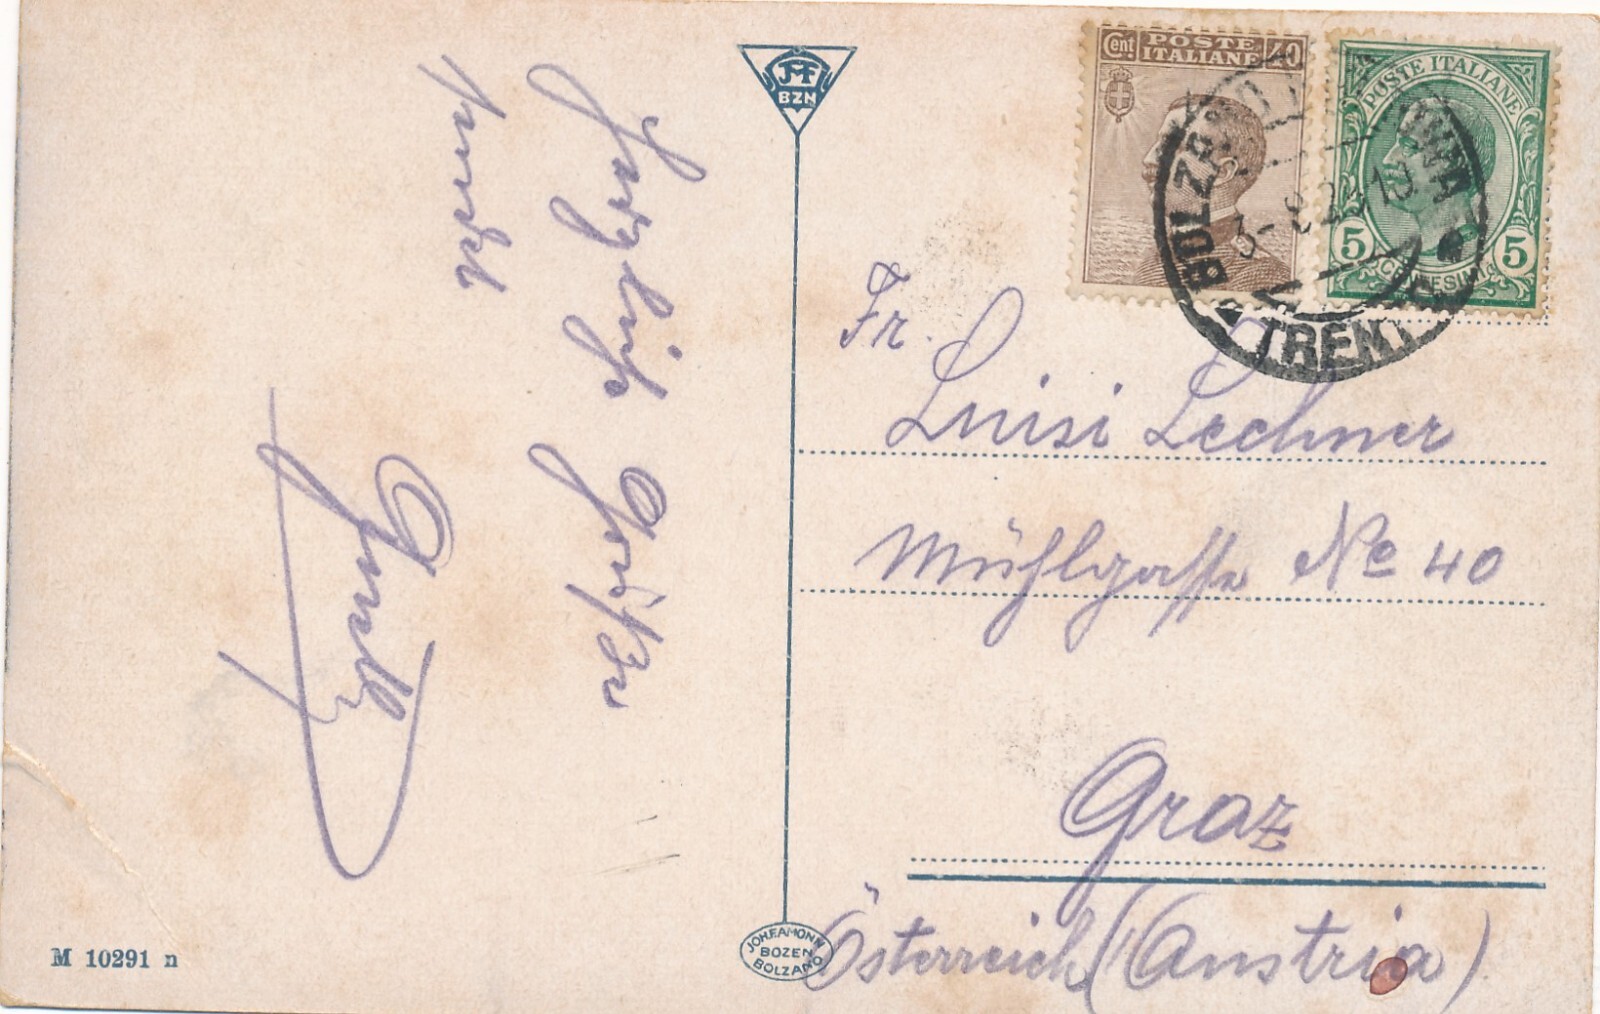 Herzliche Grüße
sendet
JMF
BZN
Cent POSTE ITALIANE 40
POSTE ITALIANE
5 CENTESIMI 5
BOLZANO
TRENTO
Fr.
Luisi Lechner
Mühlgasse No 40
Graz
Österreich (Austria)
M 10291 n
JOH.F.AMONN
BOZEN
BOLZANO